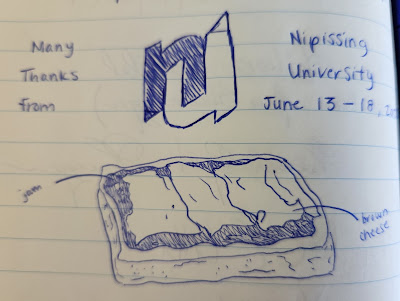 Many
Thanks
From
nu
Nipissing
University
June 13-18,
jam
brown
cheese